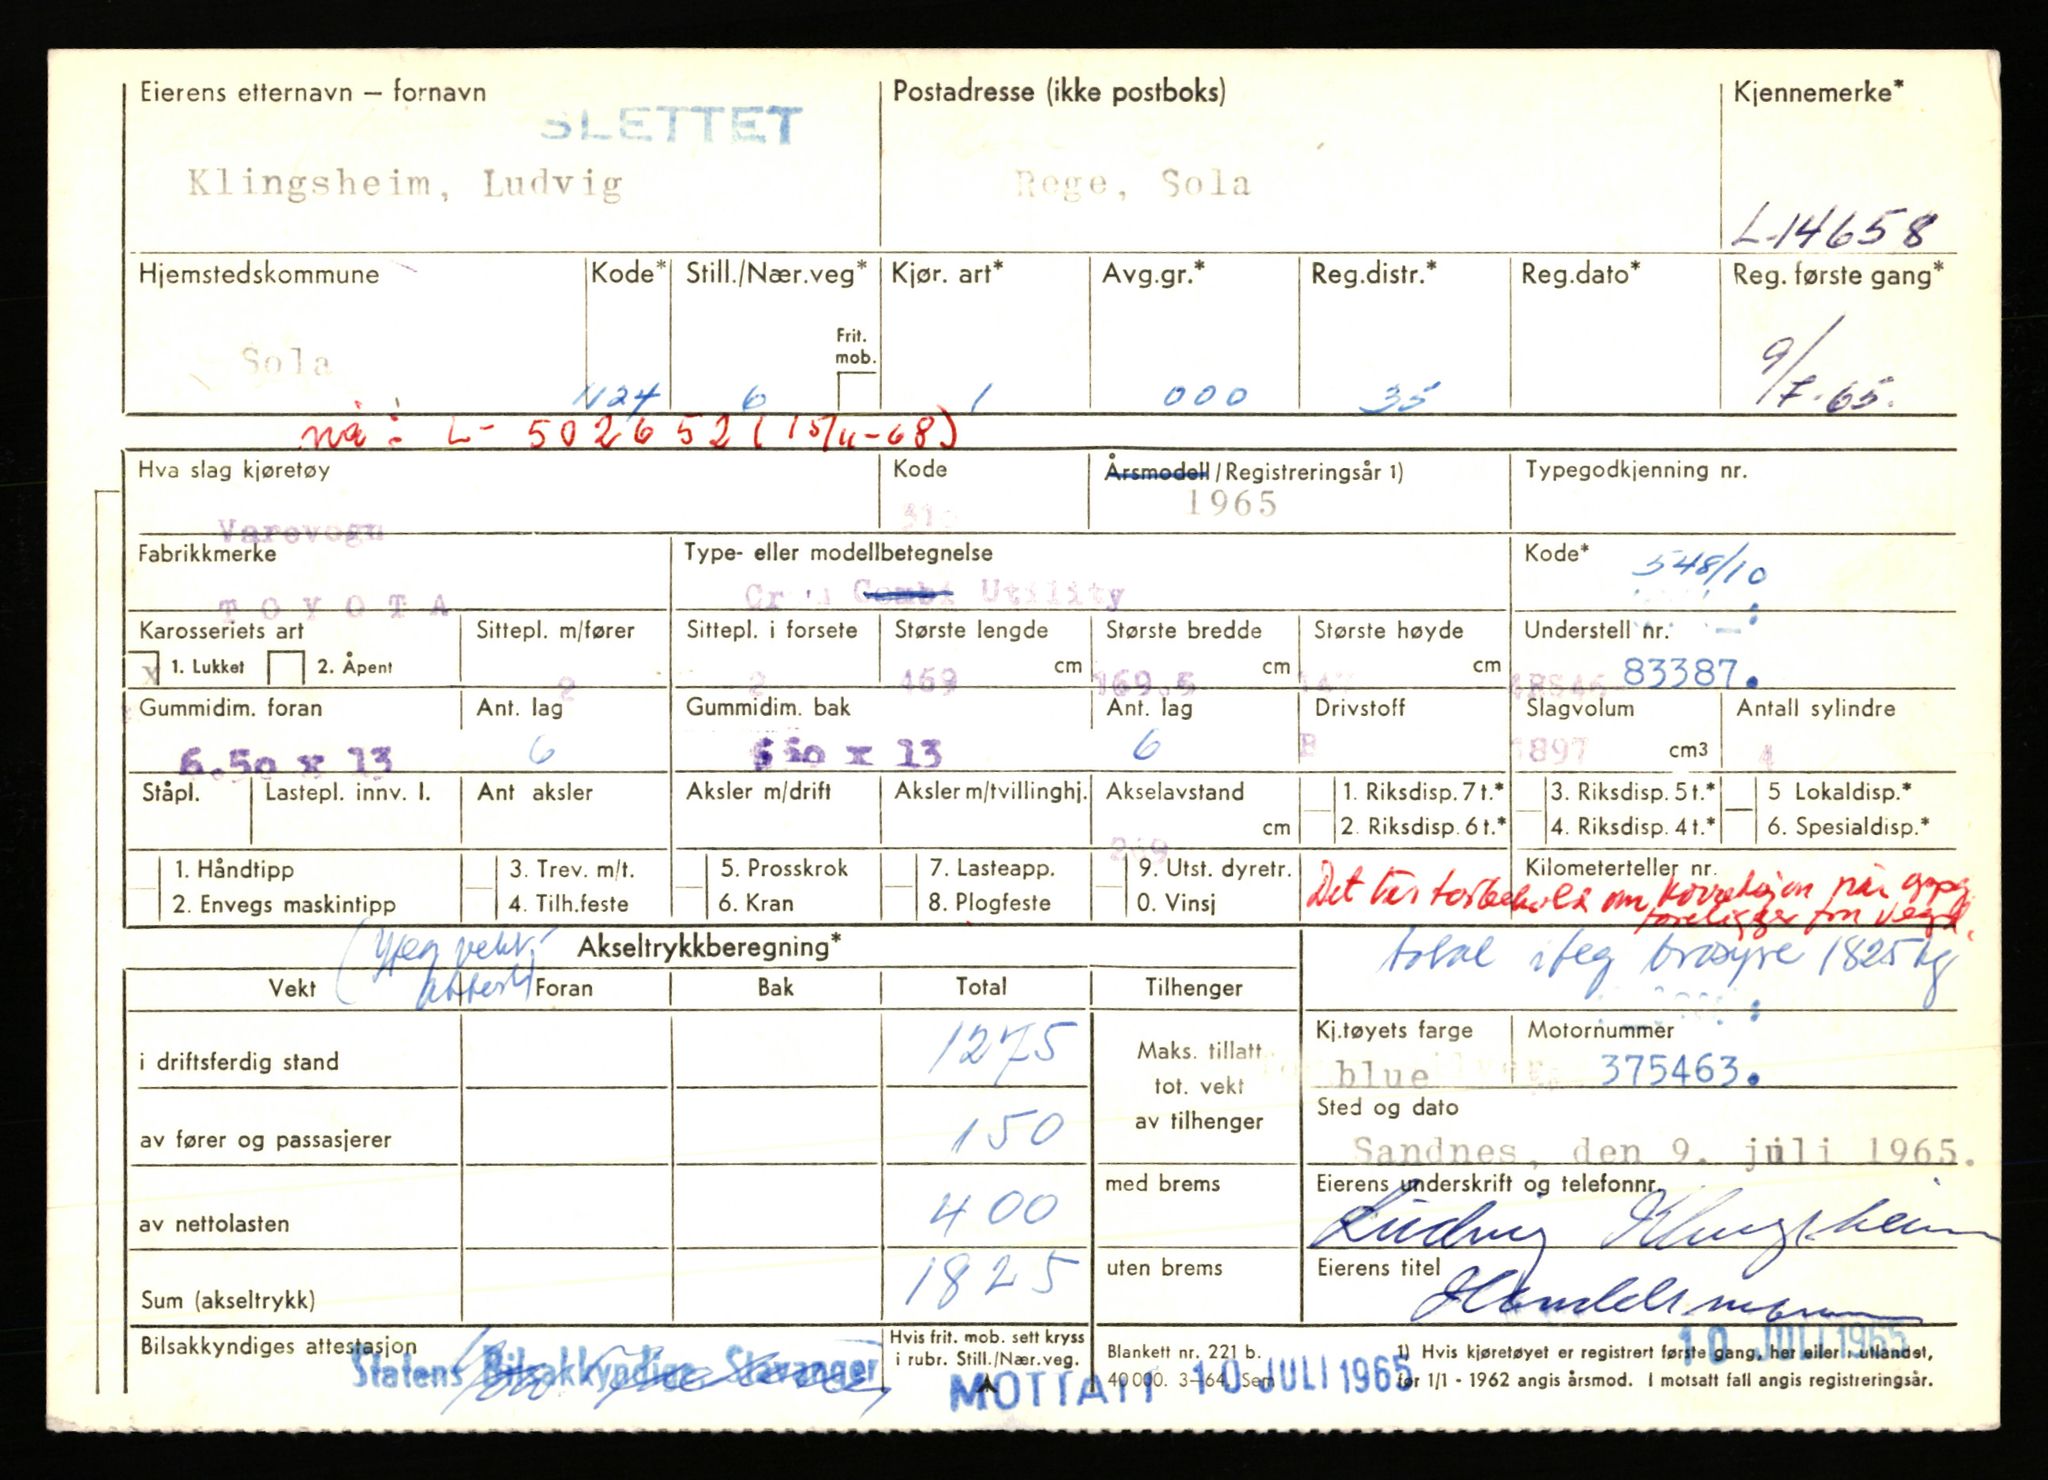 Eierens etternavn – fornavn
Postadresse (ikke postboks)
Kjennemerke*
SLETTET
Klingsheim, Ludvig
Rege, Sola
L-14658
Hjemstedskommune
Kode*
Still./Nær.veg*
Kjør. art*
Avg.gr.*
Reg.distr.*
Reg.dato*
Reg. første gang*
Frit. mob.
Sola
1124
6
1
000
35
9/7-65.
nå: L- 502652 (15/11-68)
Hva slag kjøretøy
Kode
Årsmodell/Registreringsår 1)
Typegodkjenning nr.
1965
Varevogn
Fabrikkmerke
Type- eller modellbetegnelse
Kode*
548/10
TOYOTA
Combi Utility
Karosseriets art
Sittepl. m/fører
Sittepl. i forsete
Største lengde
Største bredde
Største høyde
Understell nr.
x 1. Lukket 2. Åpent
2
2
469 cm
169.5 cm
147 cm
83387.
Gummidim. foran
Ant. lag
Gummidim. bak
Ant. lag
Drivstoff
Slagvolum
Antall sylindre
6.50 x 13
6
650 x 13
6
B
1897 cm3
4
Ståpl.
Lastepl. innv. l.
Ant aksler
Aksler m/drift
Aksler m/tvillinghj.
Akselavstand
cm
269
1. Riksdisp. 7 t.*
2. Riksdisp. 6 t.*
3. Riksdisp. 5 t.*
4. Riksdisp. 4 t.*
5 Lokaldisp.*
6. Spesialdisp.*
1. Håndtipp
2. Envegs maskintipp
3. Trev. m/t.
4. Tilh.feste
5. Prosskrok
6. Kran
7. Lasteapp.
8. Plogfeste
9. Utst. dyretr.
0. Vinsj
Kilometerteller nr.
Det tas forbehold om korreksjon når oppg.
foreligger fra Vegd.
Akseltrykkberegning*
total ifølg brosjyre 1825 kg
Vekt
Foran
Bak
Total
Tilhenger
i driftsferdig stand
1275
Maks. tillatt
tot. vekt
av tilhenger
Kj.tøyets farge
Motornummer
blue
375463.
Sted og dato
av fører og passasjerer
150
Sandnes, den 9. juli 1965.
av nettolasten
400
med brems
Eierens underskrift og telefonnr.
Ludvig Klingsheim
Sum (akseltrykk)
1825
uten brems
Eierens titel
Handelsmann
Bilsakkyndiges attestasjon
Statens Bilsakkyndige Stavanger
Hvis frit. mob. sett kryss
i rubr. Still./Nær.veg.
Blankett nr. 221 b.
40 000. 3–64. Sem
MOTTATT 10 JULI 1965
10 JULI 1965
1) Hvis kjøretøyet er registrert første gang, her eller i utlandet,
før 1/1 - 1962 angis årsmod. I motsatt fall angis registreringsår.